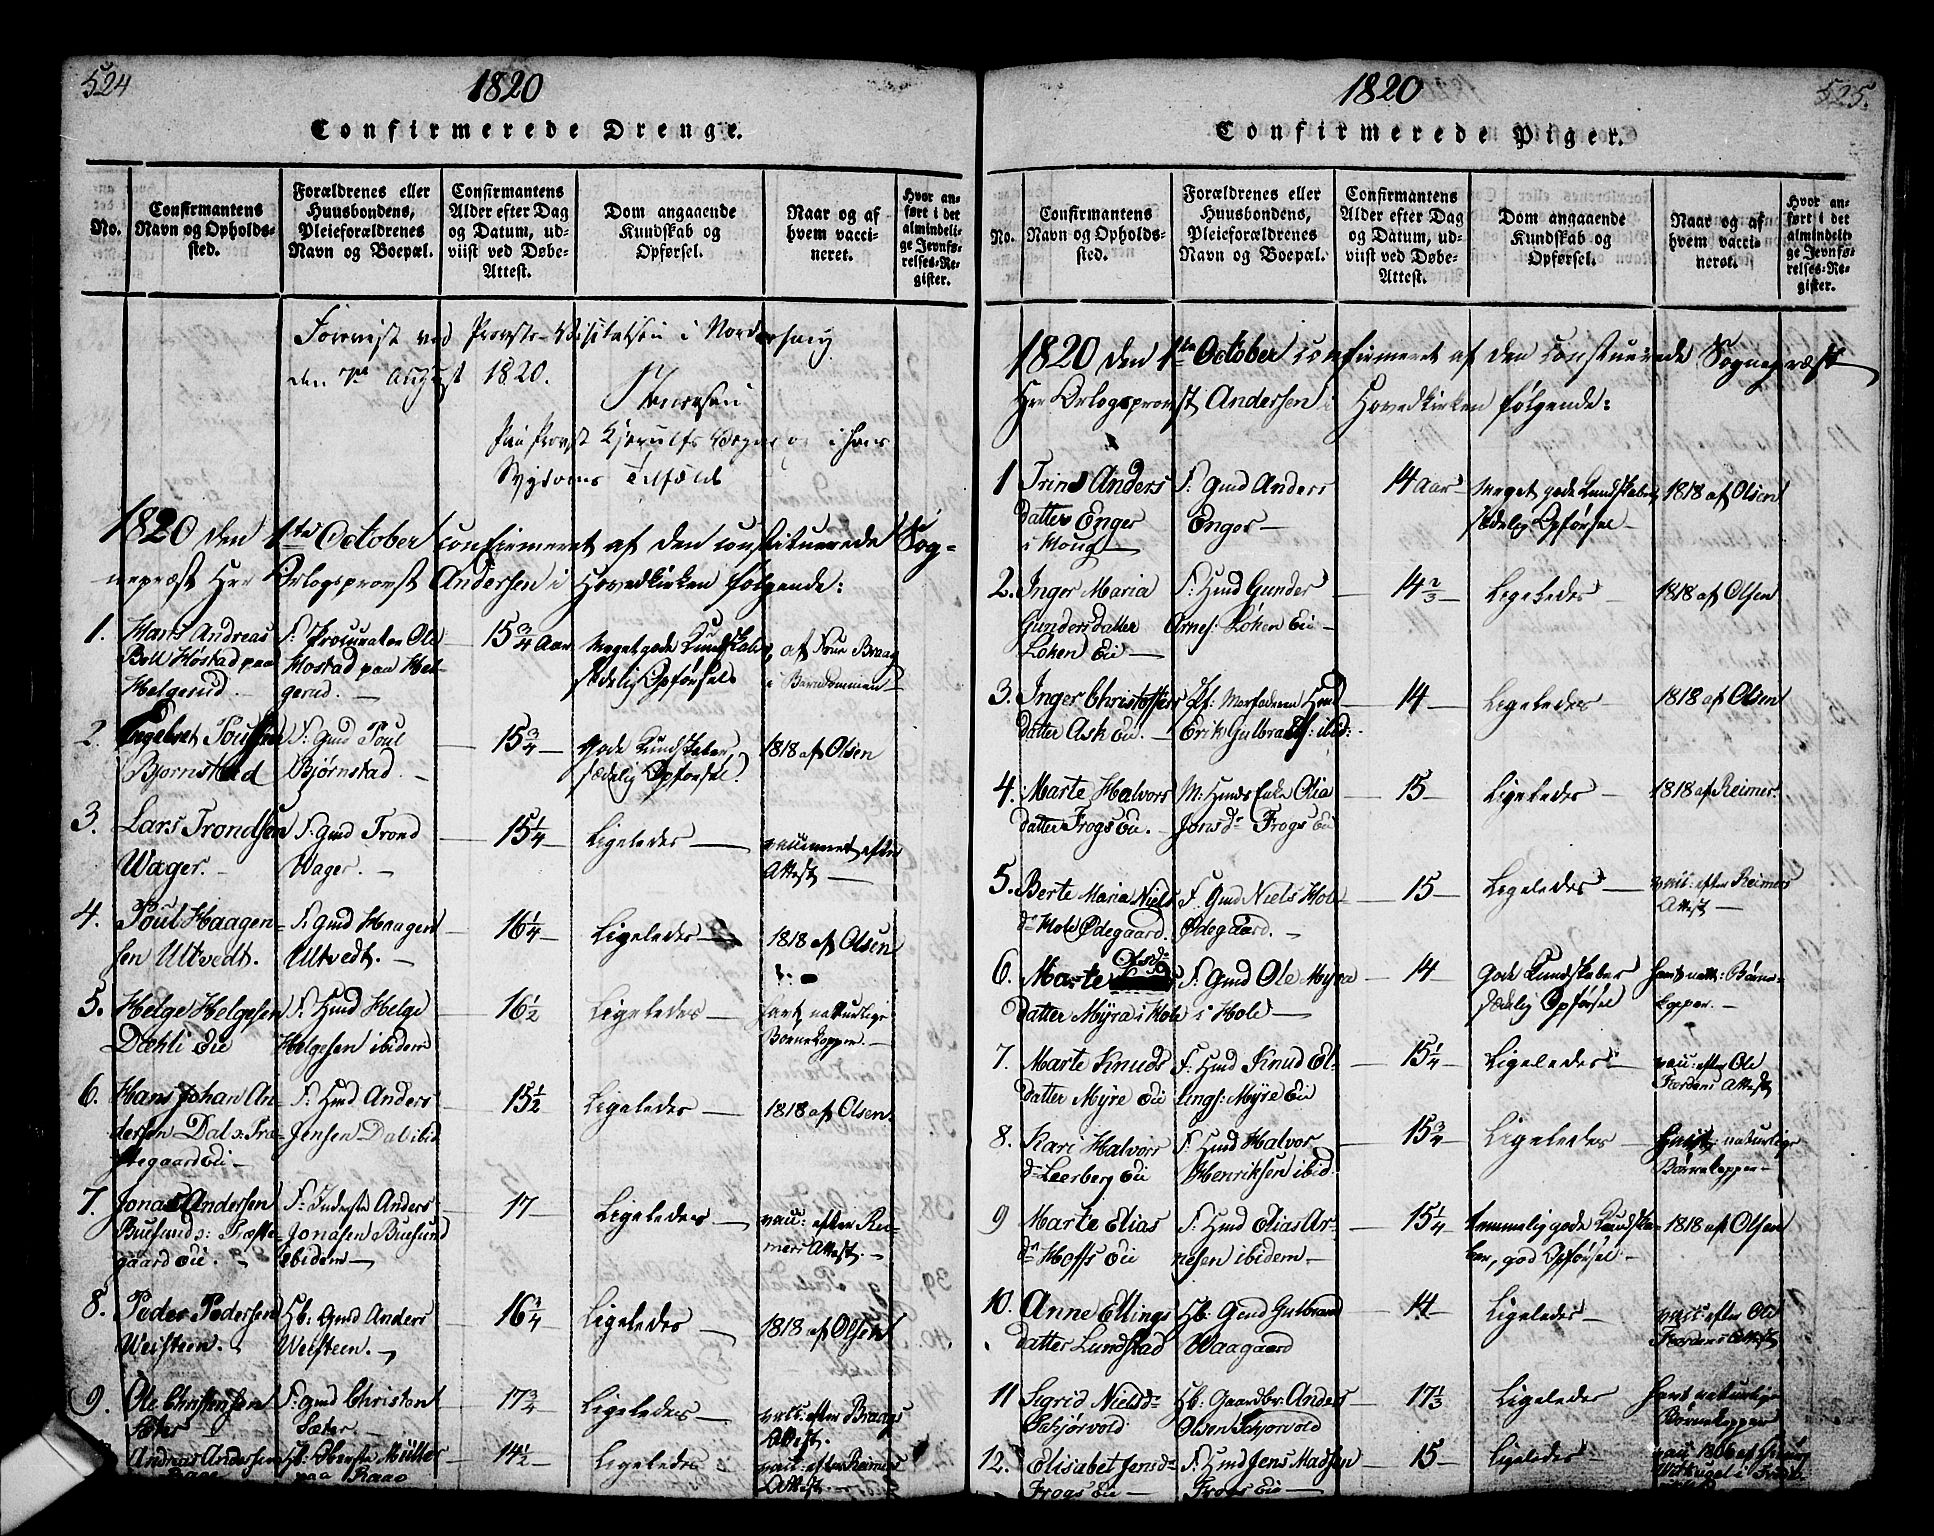 524
1820
Confirmerede Drenge.
No.
Confirmantens
Navn og Opholds-
sted.
Forældrenes eller
Huusbondens,
Pleieforældrenes
Navn og Boepæl.
Confirmantens
Alder efter Dag
og Datum, ud-
viist ved Døbe-
Attest.
Dom angaaende
Kundskab og
Opførsel.
Naar og af
hvem vacci-
neret.
Hvor an-
ført i det
almindeli-
ge Jevnfø-
relses-Re-
gister.
Foreviist ved Provste-Visitatsen i Norderhoug
den 7de August 1820.
Andersen
Sygdoms Tilfælde
1820 den 1ste October confirmeret af den constituerede Sog-
nepræst Herr Orlogsprovst Andersen i Hovedkirken følgende:
1. Hans Andreas
Boll Hostad paa
Helgerud.
F: Procurator Ole
Hostad paa Hel-
gerud.
15 3/4 Aar
Meget gode Kundskaber,
sædelig Opførsel
af Braag
i Barndommen
2. Engebret Poulsen
Bjørnstad
F: Gmd Poul
Bjørnstad.
15 3/4
gode Kundskaber,
sædelig Opførsel.
1818 af Olsen
3. Lars Trondsen
Wager.
F: Gmd Trond
Wager.
15 1/4
Ligeledes
vaccineret efter
Attest
4. Poul Haagen-
sen Ultvedt.
F: Gmd Haagen
Ultvedt.
16 1/4
Ligeledes
1818 af Olsen
5. Helge Helgesen
Dæhli Eie
F: Hmd Helge
Helgesen ibidem
16 1/2
Ligeledes
havt naturlige
Børnekopper.
6. Hans Johan An-
dersen Dal o: Præ-
stegaard Eie
F: Hmd Anders
Jensen Dal ibid
15 1/2
Ligeledes
1818 af Olsen.
7. Jonas Andersen
Busund o: Præste-
gaard Eie.
F: Inderste Anders
Jonasen Busund
ibidem
17
Ligeledes
vacc: efter Rei-
mers Attest.
8. Peder Pedersen
Weisteen.
Hb: Gmd Anders
Weisteen.
16 3/4
Ligeledes
1818 af Olsen
9. Ole Christensen
Sæter
F: Gmd Christen
Sæter.
17 3/4
Ligeledes
vacc: efter Braags
Attest.
Andreas Andersen
Hb: Oberste Müller
paa Raae
14 1/2
Ligeledes
vacc: efter Reimers
Attest.
525.
1820
Confirmerede Piger.
No.
Confirmantens
Navn og Opholds-
sted.
Forældrenes eller
Huusbondens,
Pleieforældrenes
Navn og Boepæl.
Confirmantens
Alder efter Dag
og Datum, ud-
viist ved Døbe-
Attest.
Dom angaaende
Kundskab og
Opførsel.
Naar og af
hvem vacci-
neret.
Hvor an-
ført i det
almindeli-
ge Jevnfø-
relses-Re-
gister.
1820 den 1ste October confirmeret af den constuerede Sognepræst
Herr Orlogsprovst Andersen i Hovedkirken følgende:
1 Trine Anders
datter Enger
i Houg
F: Gmd Anders
Enger
14 Aar
Meget gode Kundskaber,
sædelig Opførsel
1818 af Olsen
2. Inger Maria
Gundersdatter
Lohen Eie
F: Hmd Gunder
Arnes: Lohen Eie
14 2/3
Ligeledes
1818 af Olsen
3. Inger Christoffers
datter Ask Eie.
Pf: Morfaderen Hmd
Erik Gulbrands: ibid:
14
Ligeledes
1818 af Olsen
4. Marte Halvors
datter Frogs Eie.
M: Hmds Enke Olia
Jonsdr Frogs Eie
15
Ligeledes
1818 af Reimer.
5. Berte Maria Niels
dr Hole Ødegaard.
F. Gmd Niels Hole
Ødegaard.
15
Ligeledes
vacc: efter Reimers
Attest
6. Marte Olsdr
datter Myra i Hole
F: Gmd Ole Myra
i Hole
14
gode Kundskaber
sædelig Opførsel
havt natt: Børne-
kopper.
7. Marte Knuds
datter Myre Eie
F: Hmd Knud El-
lings: Myre Eie
15 1/4
Ligeledes
vacc: efter Ole
Fjordens Attest
8. Kari Halvors
dr Leerberg Eie
F: Hmd Halvor
Henriksen ibid:
15 3/4
Ligeledes
havt naturlige
Børnekopper
9 Marte Elias
dr Hoffs Eie
F: Hmd Elias Ar-
nesen ibidem
15 1/4
temmelig gode Kundska-
ber, god Opførsel
1818 af Olsen
10. Anne Ellings
datter Lundstad
Hb: Gmd Gulbrand
Waagaard
14
Ligeledes
vacc: efter Ole
Fjordens Attest
11 Sigrid Nielsdr
Schjørvold
Hb: Gaardbr: Anders
Olsen Schjorvold
17 1/3
Ligeledes
havt naturlige
Børnekopper
12. Elisabet Jensdr
Frogs Eie
F: Hmd Jens Madsen
Frogs Eie
15
Ligeledes
vacc: 1806 af